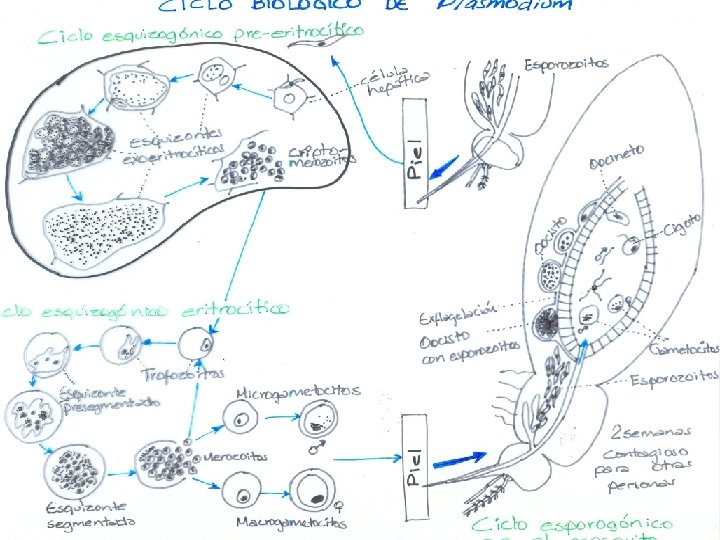 CICLO BIOLÓGICO DE Plasmodium
Ciclo esquizogónico pre-eritrocítico
célula
hepática
Esporozoitos
Esquizontes
exoeritrocíticos
Cripto-
merozoitos
Piel
Oocineto
Oocisto
Cigoto
clo esquizogónico eritrocítico
Exflagelación
Oocisto
con esporozoitos
Gametocitos
Trofozoitos
Esquizonte
presegmentado
Microgametocitos
Esporozoitos
Merozoitos
Piel
2 semanas
contagioso
para otras
personas
Esquizonte
segmentado
Macrogametocitos
Ciclo esporogónico